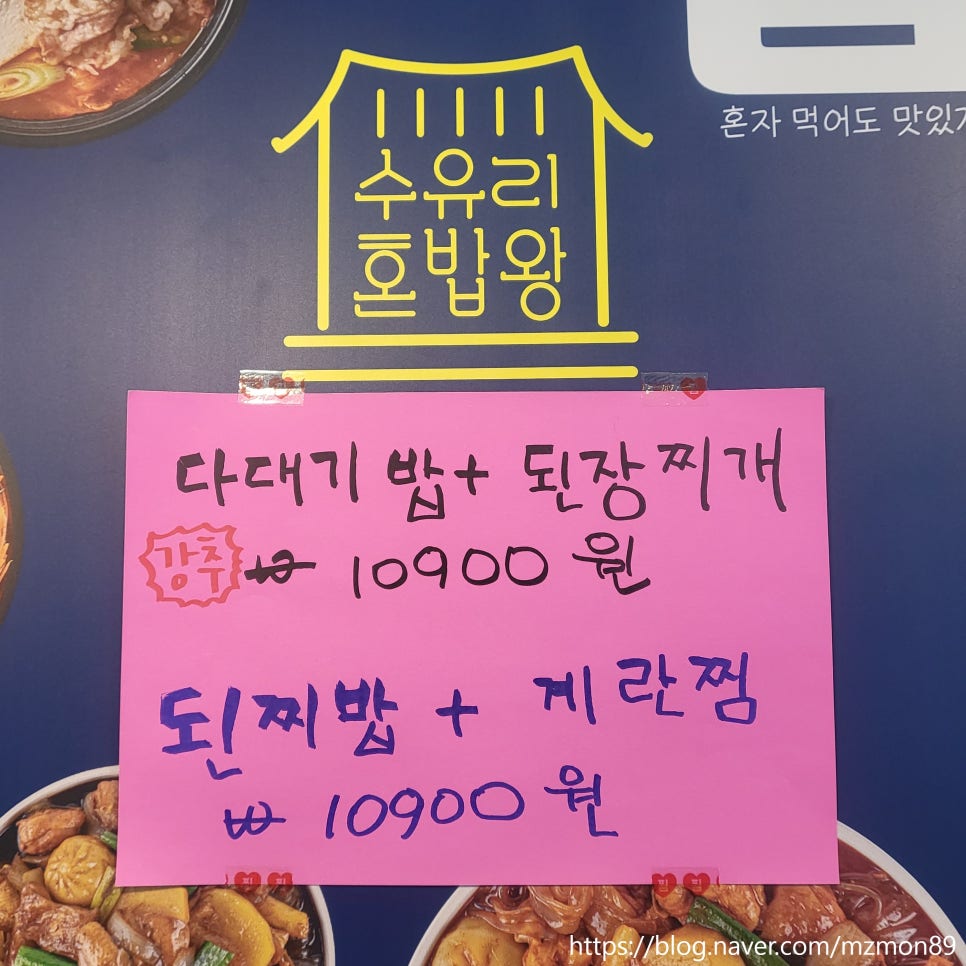 혼자 먹어도 맛있
수유리
혼밥왕
다대기 밥 + 된장찌개
강추 ₩ 10900 원
된찌밥 + 계란찜
₩ 10900 원
https://blog.naver.com/mzmon89